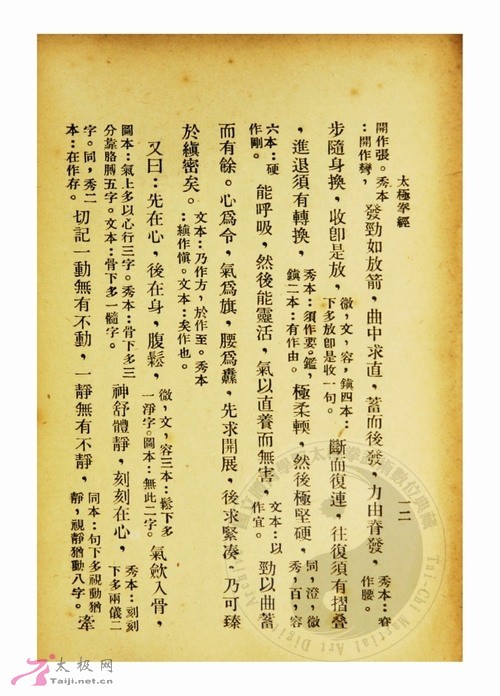 太極拳經 一二
開作張。秀本:開作彎,發勁如放箭,曲中求直,蓄而後發,力由脊發,秀本:脊作腰。
步隨身換,收卽是放,微,文,容,鎮四本:下多放卽是收一句。斷而復連,往復須有摺叠
,進退須有轉換,秀本:須作要。鑑,鎮二本:有作由。極柔輭,然後極堅硬,同,澄,微秀,百,容
六本:硬作剛。能呼吸,然後能靈活,氣以直養而無害,文本:以作宜。勁以曲蓄
而有餘。心爲令,氣爲旗,腰爲纛,先求開展,後求緊凑,乃可臻
於縝密矣。文本:乃作方,於作至。秀本:縝作愼。文本:矣作也。
又曰:先在心,後在身,腹鬆,微,文,容三本:鬆下多一淨字。圖本:無此二字。氣歛入骨,
圖本:氣上多以心行三字。秀本:骨下多三分靠胳膊五字。文本:骨下多一髓字。神舒體靜,刻刻在心,秀本:刻刻下多兩儀二
字。同,秀二本:在作存。切記一動無有不動,一靜無有不靜,同本:句下多視動猶靜,視靜猶動八字。牽
太极网
Taiji.net.cn
Tai-Chi Martial Art Digital